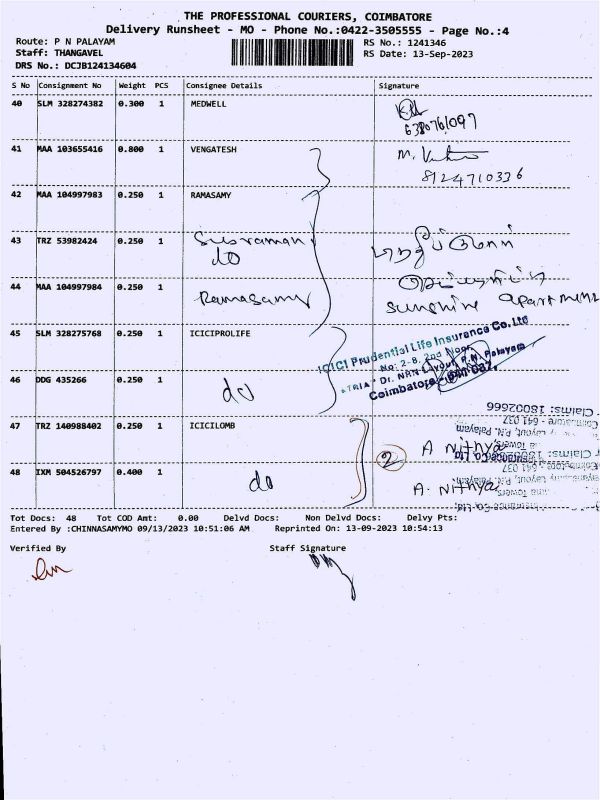 THE PROFESSIONAL COURIERS, COIMBATORE
Delivery Runsheet - MO - Phone No.:0422-3505555 - Page No.:4
Route: P N PALAYAM
Staff: THANGAVEL
DRS No.: DCJB124134604
RS No.: 1241346
RS Date: 13-Sep-2023
S No Consignment No Weight PCS Consignee Details Signature
40 SLM 328274382 0.300 1 MEDWELL
6380761097
41 MAA 103655416 0.800 1 VENGATESH
8124710336
42 MAA 104997983 0.250 1 RAMASAMY
43 TRZ 53982424 0.250 1
do
44 MAA 104997984 0.250 1 Ramasamy
sunshine apartment
45 SLM 328275768 0.250 1 ICICIPROLIFE
ICICI Prudential Life Insurance Co. Ltd
No: 2-8, 2nd Floor,
"TRIA" Dr. NRN Layout, P.N. Palayam
Coimbatore - 641 037.
46 DDG 435266 0.250 1 do
47 TRZ 140988402 0.250 1 ICICILOMB 2 A Nithya
Claims: 18002666
48 IXM 504526797 0.400 1 do A. Nithya
Tot Docs: 48 Tot COD Amt: 0.00 Delvd Docs: Non Delvd Docs: Delvy Pts:
Entered By :CHINNASAMYMO 09/13/2023 10:51:06 AM Reprinted On: 13-09-2023 10:54:13
Verified By Staff Signature